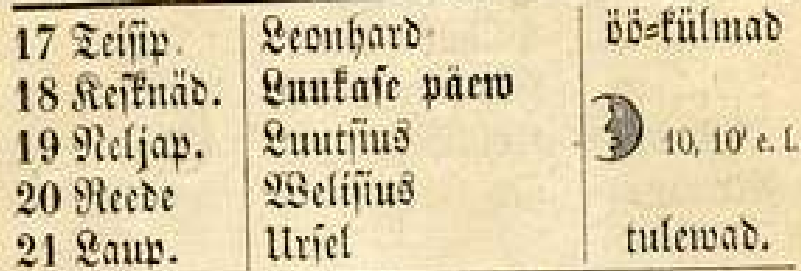 17 Teisip. Leonhard öö-külmad
18 Kesknäd. Luukase päew
19 Neljap. Luutsius 10, 10' e. l.
20 Reede Welisius
21 Laup. Ursel tulewad.